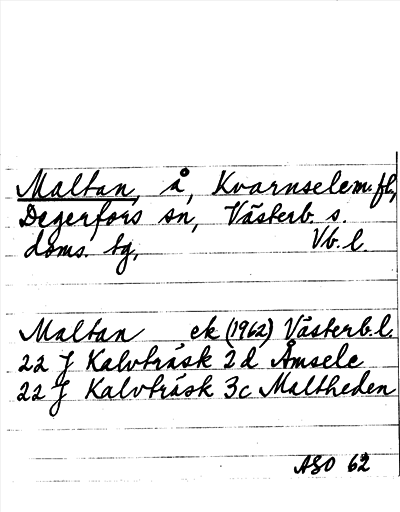 Maltan, å, Kvarnselem. fl,
Degerfors sn, Västerb. s.
doms. tg, Vb. l.
Maltan ek (1962) Västerb. l.
22 J Kalvträsk 2d Åmsele
22 J Kalvträsk 3c Maltheden
ASO 62